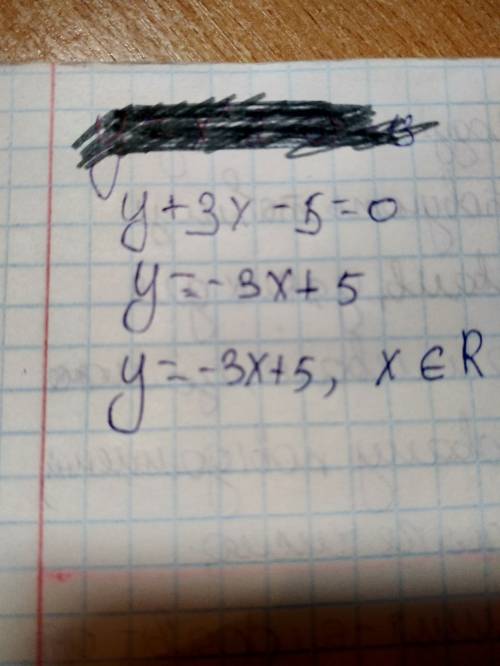 y+3x-5=0
y=-3x+5
y=-3x+5, x ∈ R